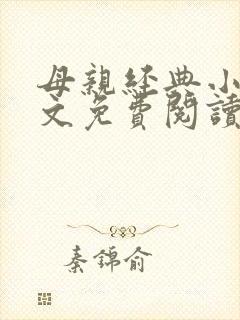 母親經典小
文免費閱讀
秦錦俞